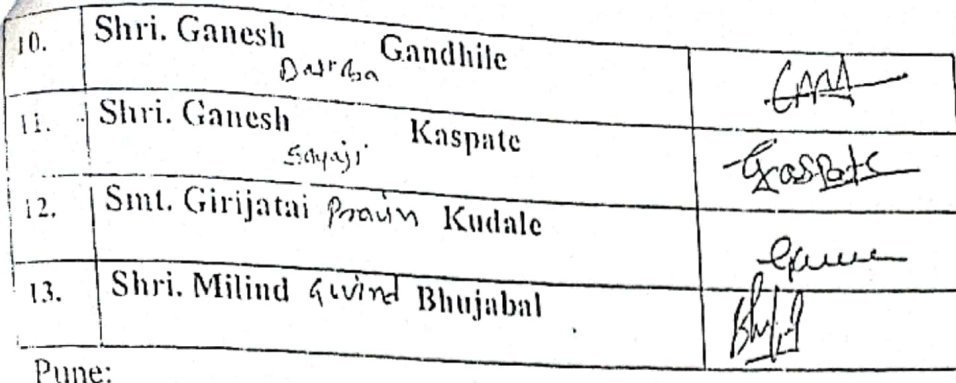 10. Shri. Ganesh Gandhile
11. Shri. Ganesh Sayaji Kaspate Gkaspate
12. Smt. Girijatai Pravin Kudale
13. Shri. Milind Govind Bhujabal
Pune: